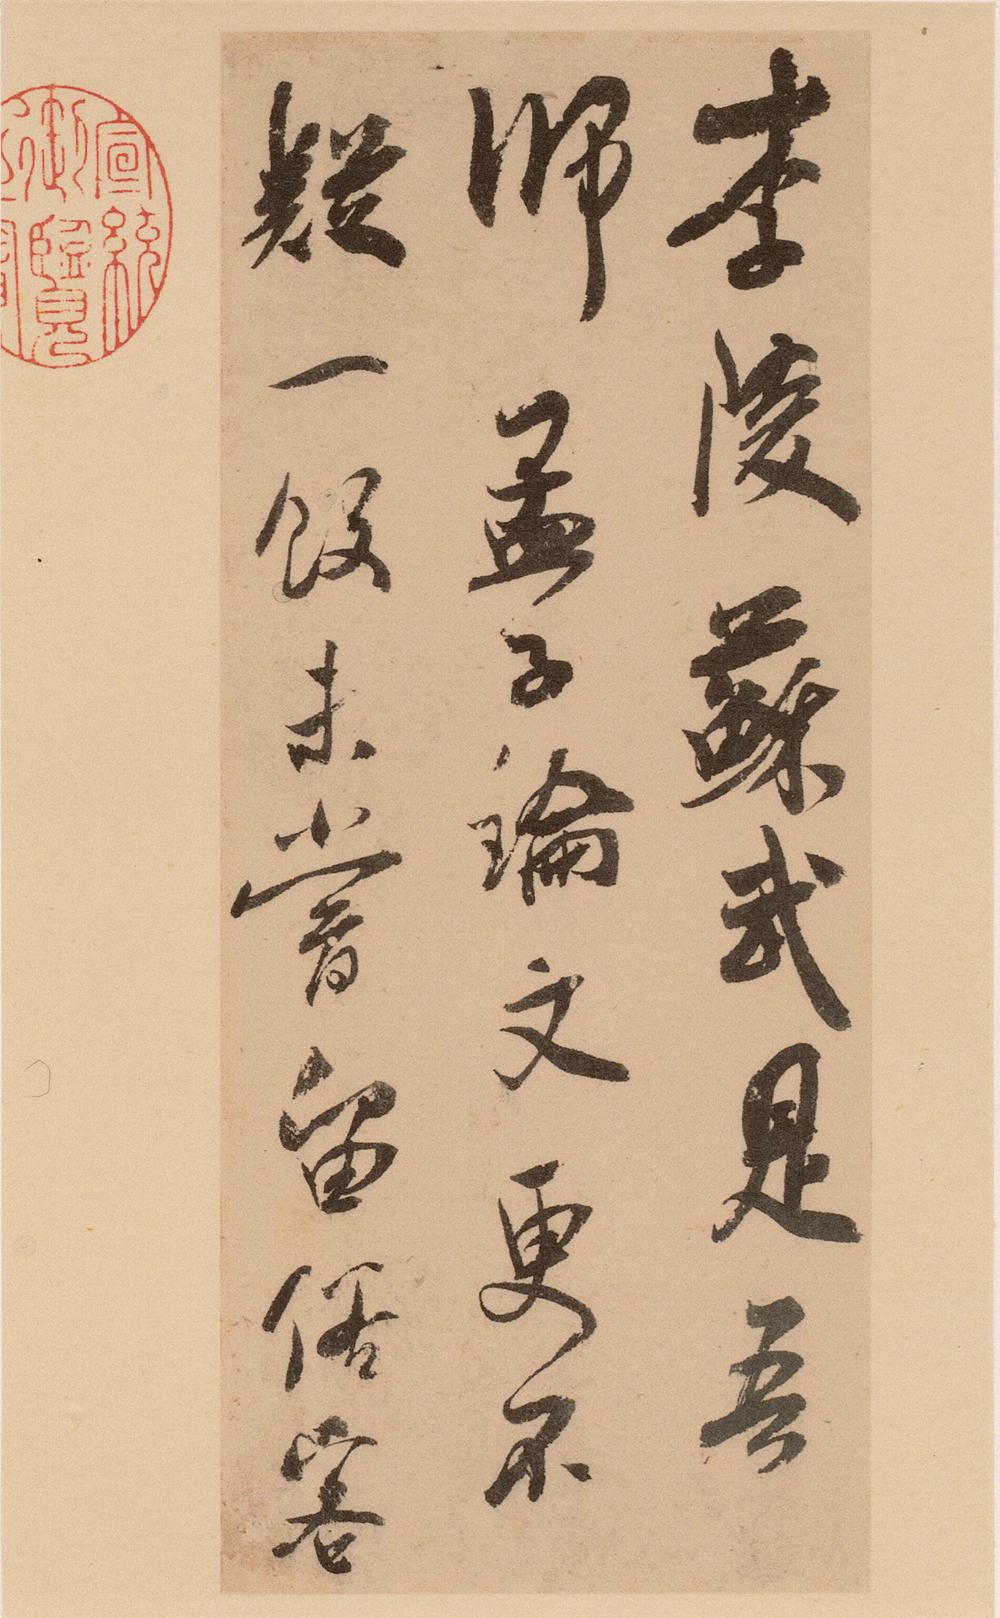 李陵蘇武是吾
師孟子論文更不
疑一飯未嘗留俗客
宣統
御覽